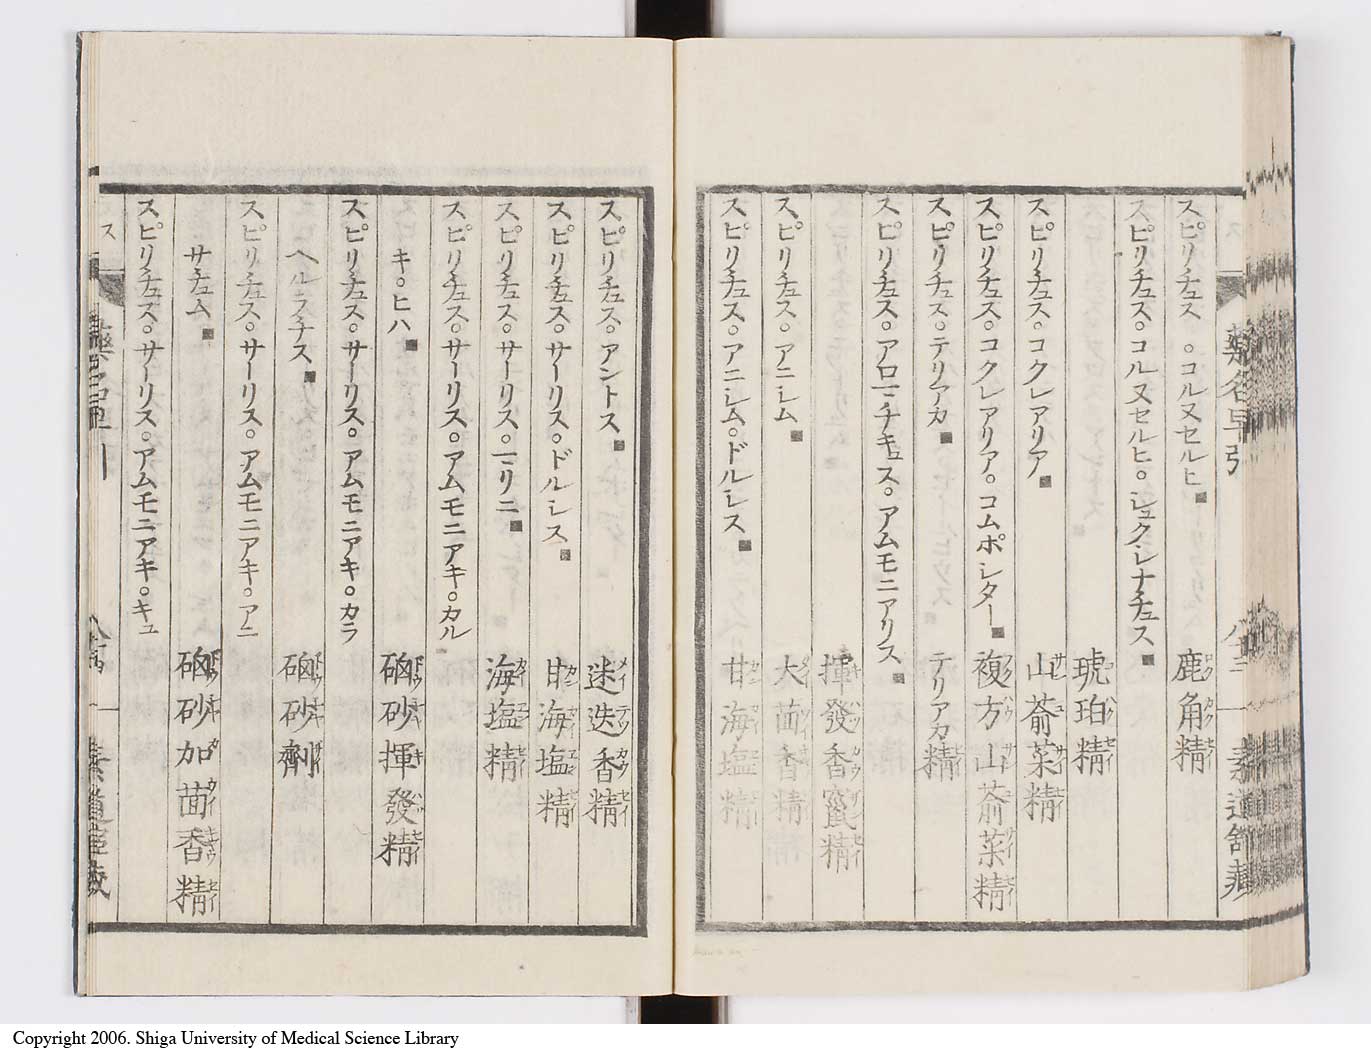 スピリチュス。コルヌセルヒ■ 鹿角精
スピリチュス。コルヌセルヒ。シュクシナチュス■
琥珀精
スピリチュス。コクレアリア■ 山萮菜精
スピリチュス。コクレアリア。コムポシター■ 複方山萮菜精
スピリチュス。テリアカ■ テリアカ精
スピリチュス。アロマチキュス。アムモニアリス■
揮發香竄精
スピリチュス。アニシム■ 大茴香精
スピリチュス。アニシム。ドルシス■ 甘海塩精
藥名早引
スピリチュス。アントス■ 迷迭香精
スピリチュス。サーリス。ドルシス■ 甘海塩精
スピリチュス。サーリス。マリニ■ 海塩精
スピリチュス。サーリス。アムモニアキ。カル
キ。ヒハ■ 硇砂揮發精
スピリチュス。サーリス。アムモニアキ。カラ
ヘルラチス■ 硇砂劑
スピリチュス。サーリス。アムモニアキ。アニ
サチュム■ 硇砂加茴香精
スピリチュス。サーリス。アムモニアキ。キュ
ス
Copyright 2006. Shiga University of Medical Science Library